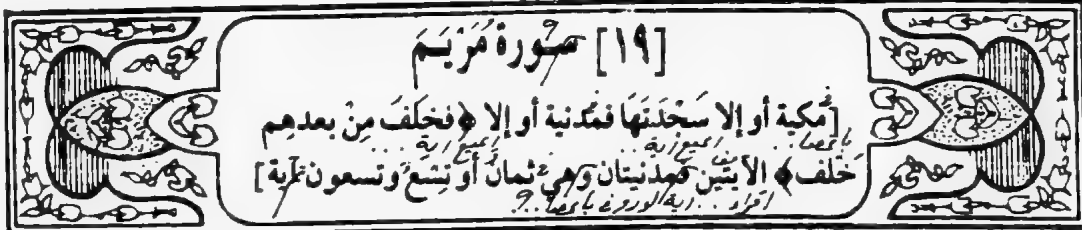 [١٩] سورة مريم
[مكية أو إلا سجدتها فمدنية أو إلا ﴿فخلف من بعدهم
خلف﴾ الآيتين فمدنيتان وهي ثمان أو تسع وتسعون آية]